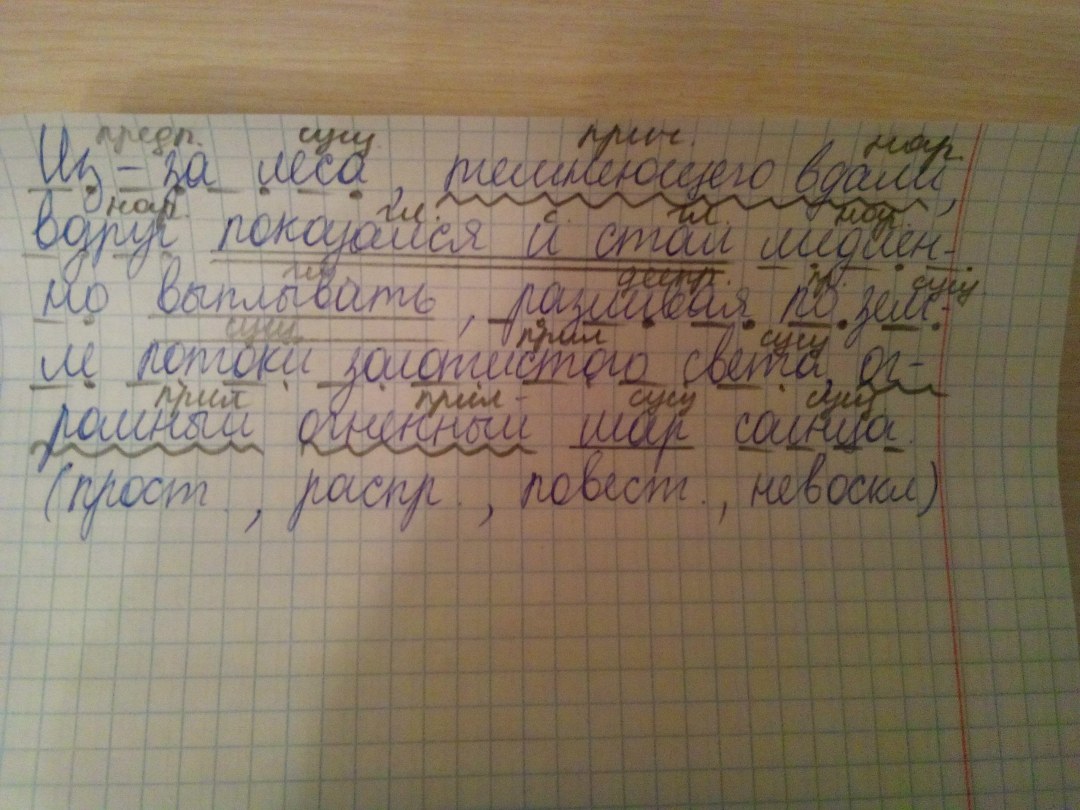 предп. сущ прич. нар.
Из-за леса, темнеющего вдали,
нар. гл. с. гл. нар
вдруг показался и стал медлен-
гл деепр. пр. сущ
но выплывать, разливая по зем-
сущ прил сущ
ле потоки золотистого света, ог-
прил прил сущ сущ
ромный огненный шар солнца.
(прост., распр., повест., невоскл)